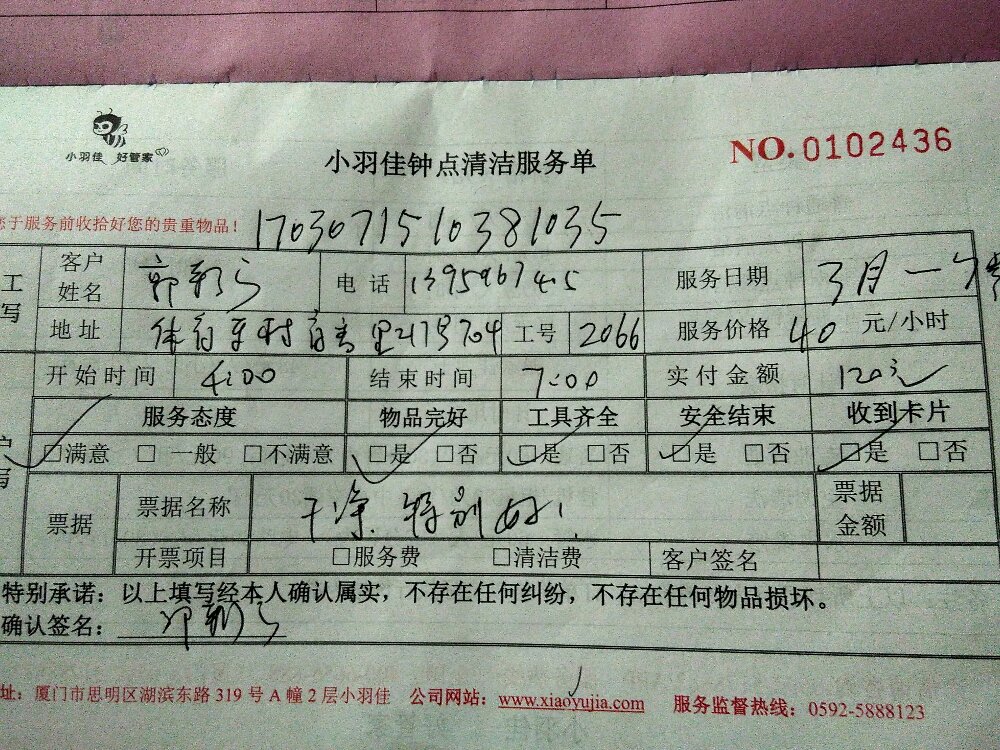 小羽佳 好管家
小羽佳钟点清洁服务单
NO.0102436
您于服务前收拾好您的贵重物品！
1703071510381035
工 客户姓名 电话 服务日期 3月一
写 地址 2066 工号 服务价格 40 元/小时
开始时间 4:00 结束时间 7:00 实付金额 120元
服务态度 物品完好 工具齐全 安全结束 收到卡片
户 □满意 □一般 □不满意 □是 □否 □是 □否 □是 □否 □是 □否
写 票据 票据名称 干净 特别好！ 票据金额
开票项目 □服务费 □清洁费 客户签名
特别承诺：以上填写经本人确认属实，不存在任何纠纷，不存在任何物品损坏。
确认签名：
址：厦门市思明区湖滨东路 319 号 A 幢 2 层小羽佳 公司网站：www.xiaoyujia.com 服务监督热线：0592-5888123